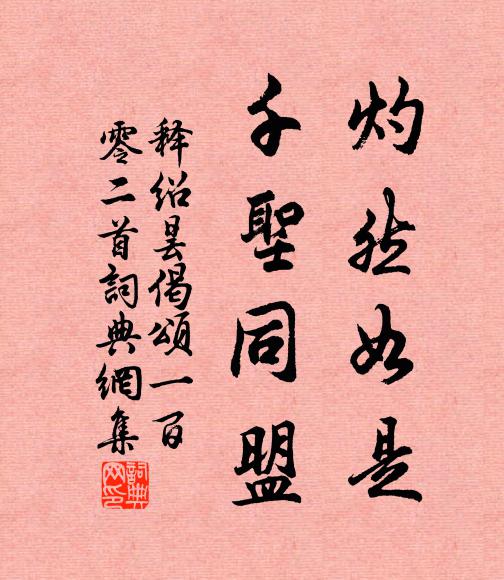 灼然如是
千聖同盟
释紹曇偈頌一百
零二首詞典網集
詞典
网印